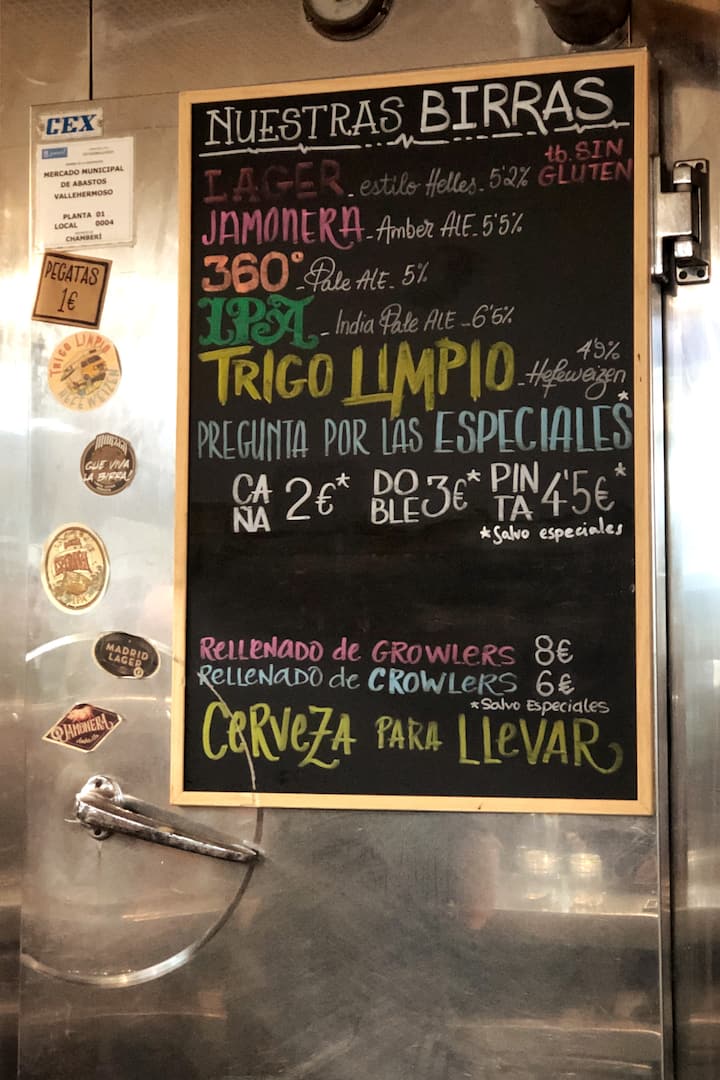 NUESTRAS BIRRAS
LAGER - estilo Helles - 5'2% tb. SIN GLUTEN
JAMONERA - Amber ALE - 5'5%
360º - Pale ALE - 5%
IPA - India Pale ALE - 6'5%
TRIGO LIMPIO - Hefeweizen 4'9%
PREGUNTA POR LAS ESPECIALES*
CAÑA 2€* DOBLE 3€* PINTA 4'5€*
*Salvo especiales
RELLENADO de GROWLERS 8€
RELLENADO de CROWLERS 6€
*Salvo Especiales
CERVEZA PARA LLEVAR
CEX
MERCADO MUNICIPAL
DE ABASTOS
VALLEHERMOSO
PLANTA 01
LOCAL 0004
CHAMBERÍ
PEGATAS
1€
TRIGO LIMPIO
HEFEWEIZEN
QUE VIVA
LA BIRRA!
MADRID
LAGER
JAMONERA